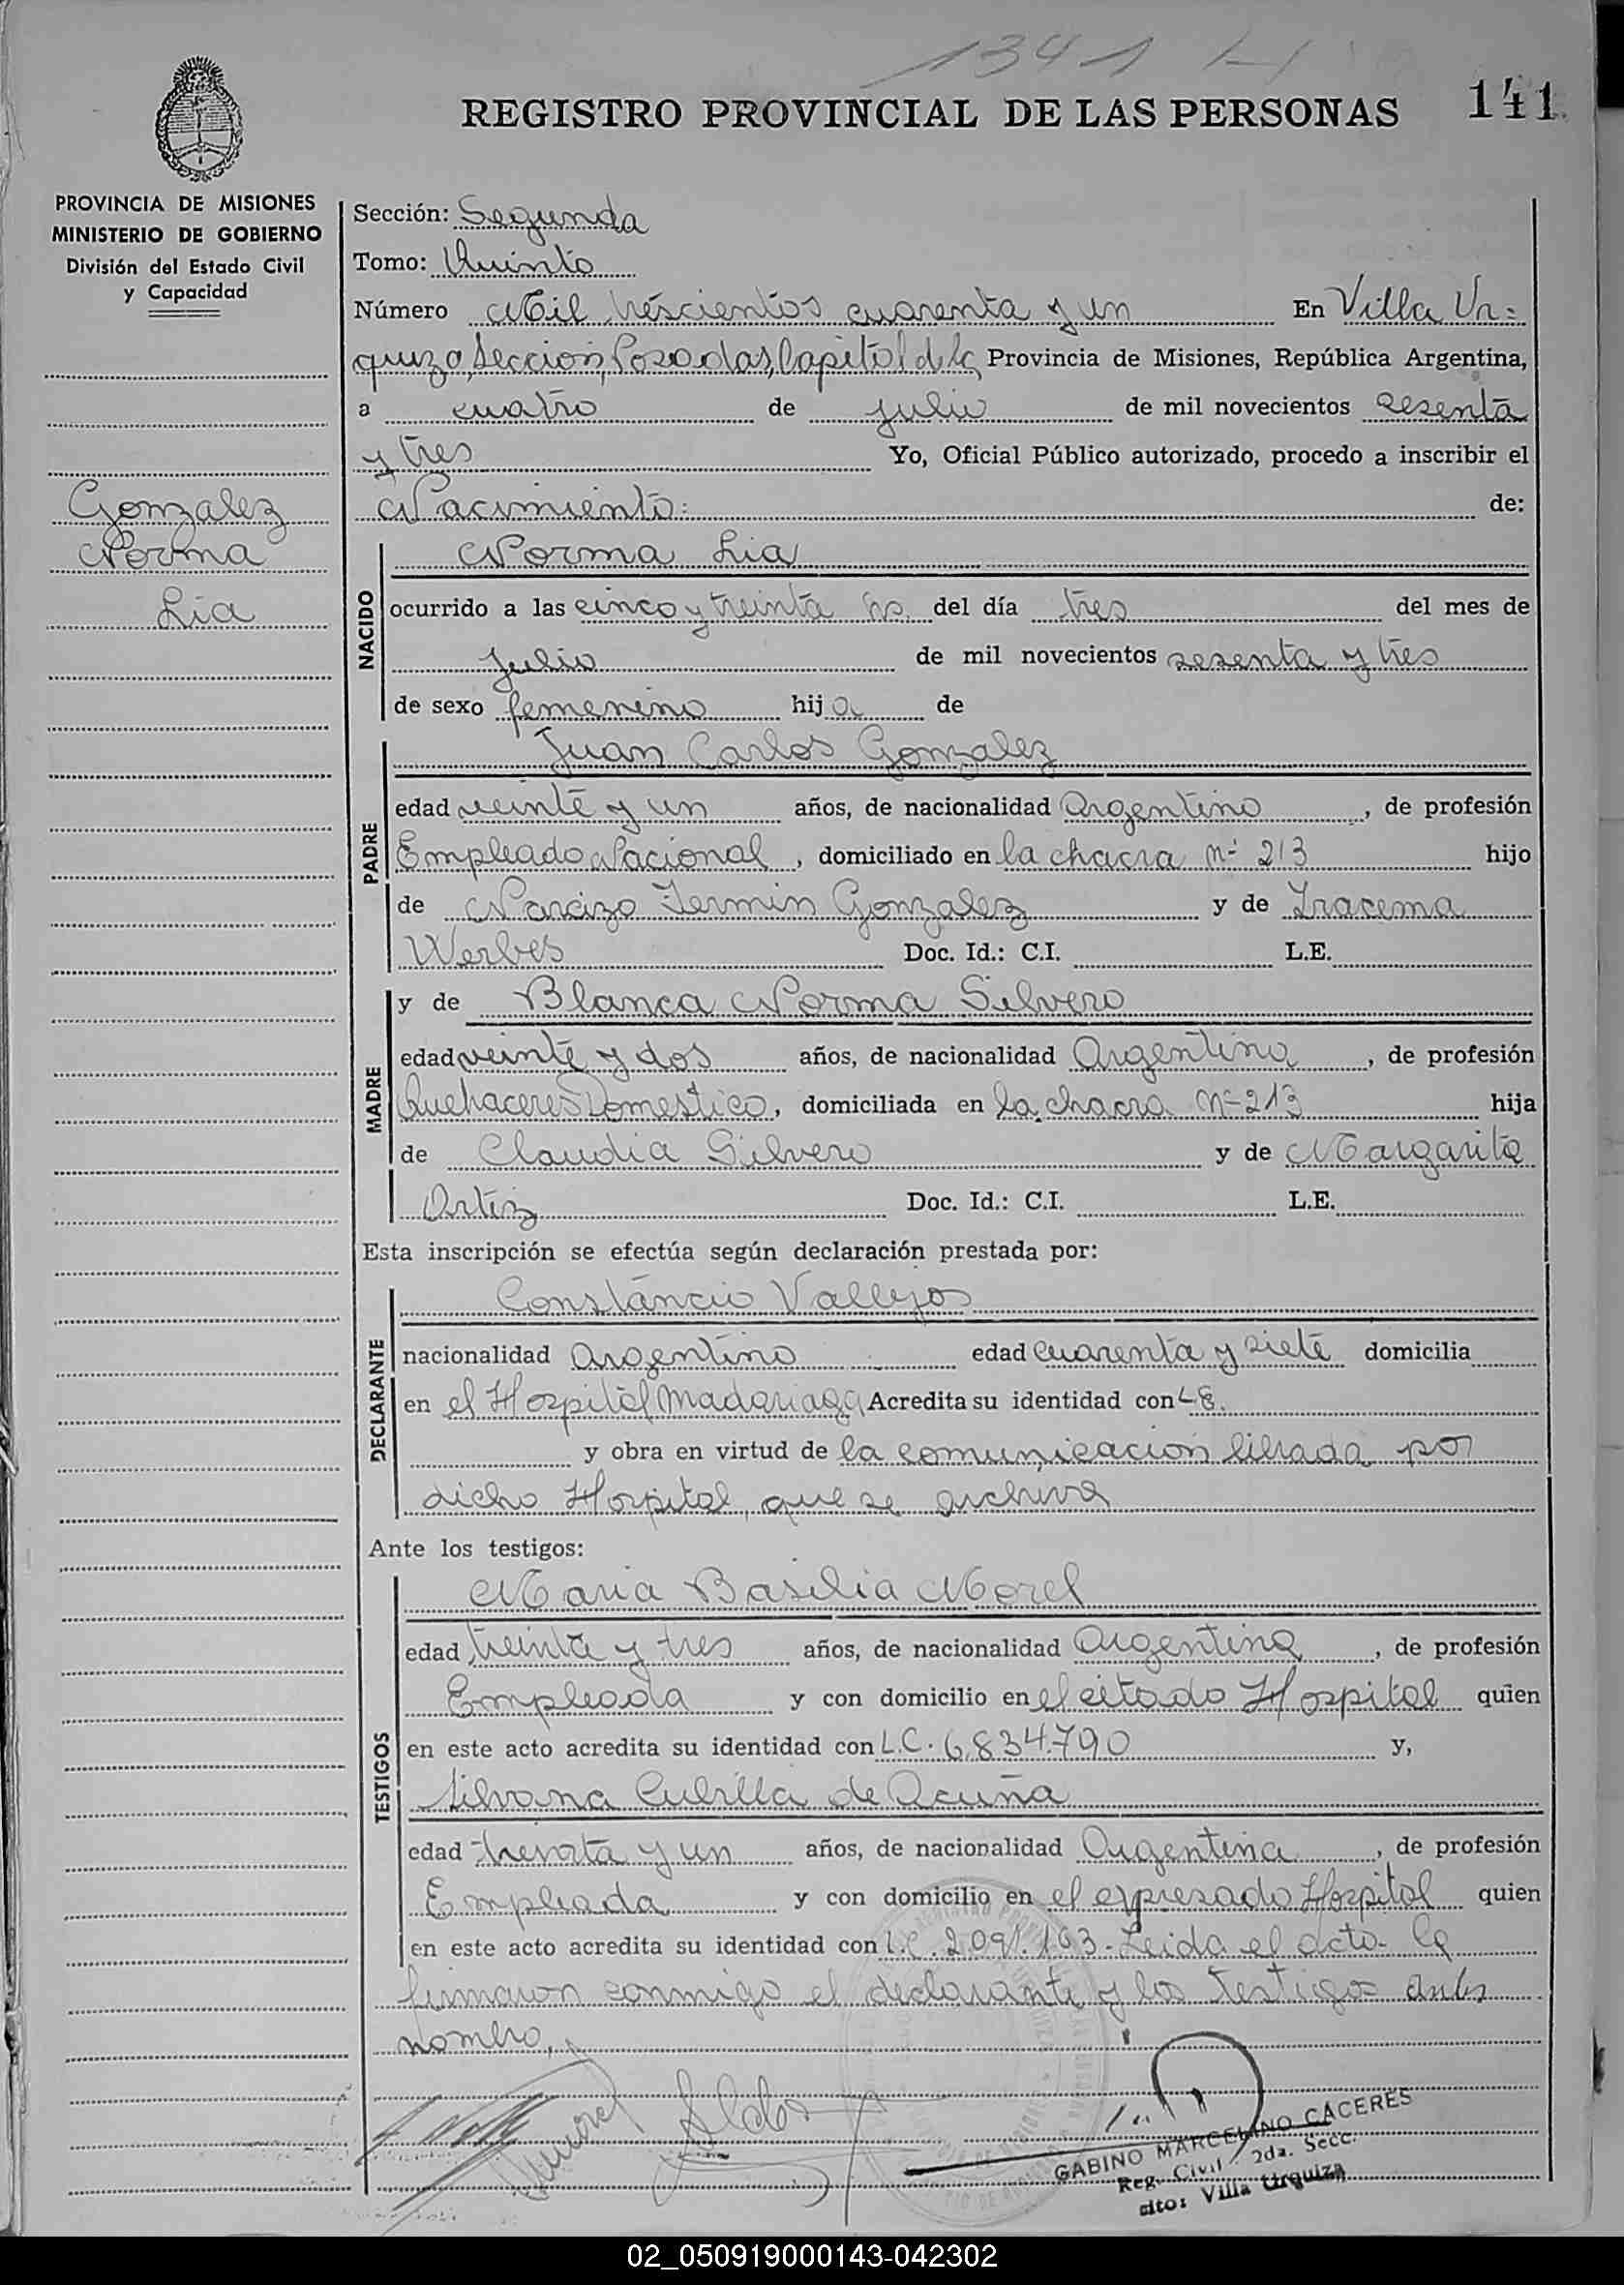 1341
REGISTRO PROVINCIAL DE LAS PERSONAS 141
PROVINCIA DE MISIONES
MINISTERIO DE GOBIERNO
División del Estado Civil
y Capacidad
Gonzalez
Norma
Lia
Sección: Segunda
Tomo: Quinto
Número Mil trescientos cuarenta y un En Villa Ur=
quiza, Seccion, Posadas, Capital de la Provincia de Misiones, República Argentina,
a cuatro de julio de mil novecientos sesenta
y tres Yo, Oficial Público autorizado, procedo a inscribir el
Nacimiento: de:
NACIDO
Norma Lia
ocurrido a las cinco y treinta hs. del día tres del mes de
julio de mil novecientos sesenta y tres
de sexo femenino hija de
PADRE
Juan Carlos Gonzalez
edad veinte y un años, de nacionalidad Argentino, de profesión
Empleado Nacional, domiciliado en la chacra Nº 213 hijo
de Narcizo Fermin Gonzalez y de Iracema
Werbes Doc. Id.: C.I. L.E.
MADRE
y de Blanca Norma Silvero
edad veinte y dos años, de nacionalidad Argentina, de profesión
Quehaceres Domestico, domiciliada en la chacra Nº 213 hija
de Claudia Silvero y de Margarita
Ortiz Doc. Id.: C.I. L.E.
Esta inscripción se efectúa según declaración prestada por:
DECLARANTE
Constancio Vallejos
nacionalidad Argentino edad cuarenta y siete domicilia
en el Hospital Madariaga Acredita su identidad con L.E.
y obra en virtud de la comunicacion librada por
dicho Hospital que se archiva
Ante los testigos:
TESTIGOS
Maria Basilia Morel
edad treinta y tres años, de nacionalidad Argentina, de profesión
Empleada y con domicilio en el citado Hospital quien
en este acto acredita su identidad con L.C. 6.834.790 y,
Silvana Cubilla de Acuña
edad treinta y un años, de nacionalidad Argentina, de profesión
Empleada y con domicilio en el expresado Hospital quien
en este acto acredita su identidad con L.C. 2.091.163- Leida el acta la
firmaron conmigo el declarante y los testigos antes
nombro,
GABINO MARCELINO CACERES
Reg. Civil 2da. Secc.
dto: Villa Urquiza
02_050919000143-042302